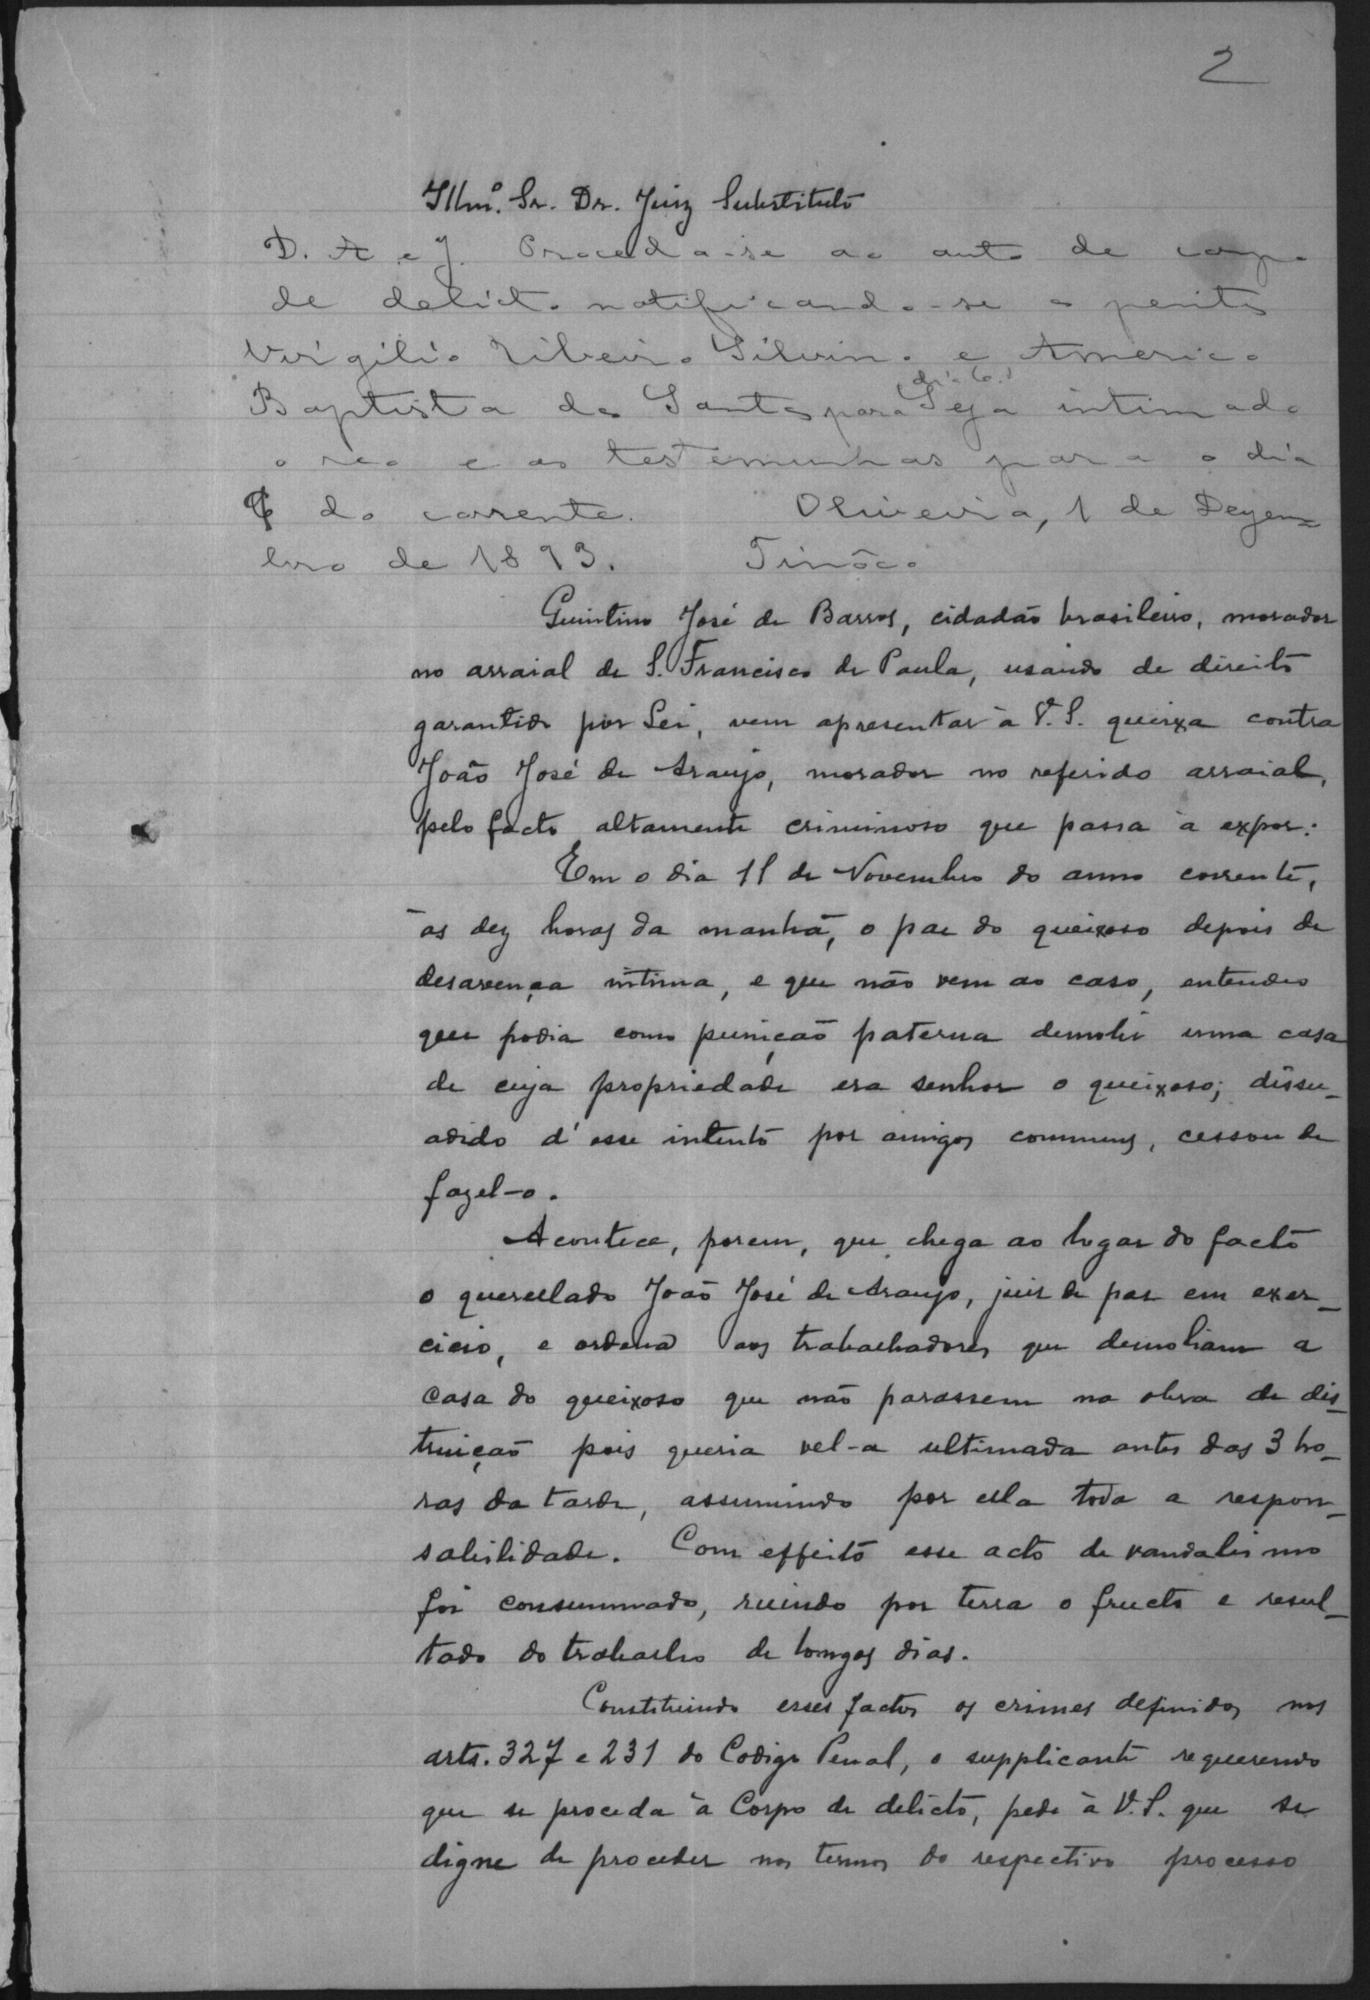 2
Illmº. Sr. Dr. Juiz Substituto
D. A. e J. Proceda-se ao auto de corpo
de delicto notificando-se o peritos
Virgilio Ribeiro Silvino e Americo
Baptista dos Santos para Seja intimado
o reo e as testemunhas para o dia
do corrente. Oliveira, 1 de Dezem-
bro de 1893. Tinôco
Quintino José de Barros, cidadão brasileiro, morador
no arraial de S. Francisco de Paula, usando de direito
garantido por Lei, vem apresentar à V. S. queixa contra
João José de Araujo, morador no referido arraial,
pelo facto altamente criminoso que passa à expor:
Em o dia 11 de Novembro do anno corrente,
às dez horas da manhã, o pae do queixoso depois de
desavença intima, e que não vem ao caso, entendeo
que podia como punição paterna demolir uma casa
de cuja propriedade era senhor o queixoso; dissu-
adido d'esse intento por amigos communs, cessou de
fazel-o.
Acontece, porem, que chega ao logar do facto
o querellado João José de Araujo, juis de pas em exer-
cicio, e ordena aos trabalhadores que demoliam a
casa do queixoso que não parassem na obra de dis-
truição pois queria vel-a ultimada antes das 3 ho-
ras da tarde, assumindo por ella toda a respon-
sabilidade. Com effeito esse acto de vandalismo
foi consummado, ruindo por terra o fructo e resul-
tado do trabalho de longos dias.
Constituindo esses factos os crimes definidos nos
arts. 327 e 231 do Codigo Penal, o supplicante requerendo
que se proceda à Corpo de delicto, pede à V. S. que se
digne de proceder nos termos do respectivo processo